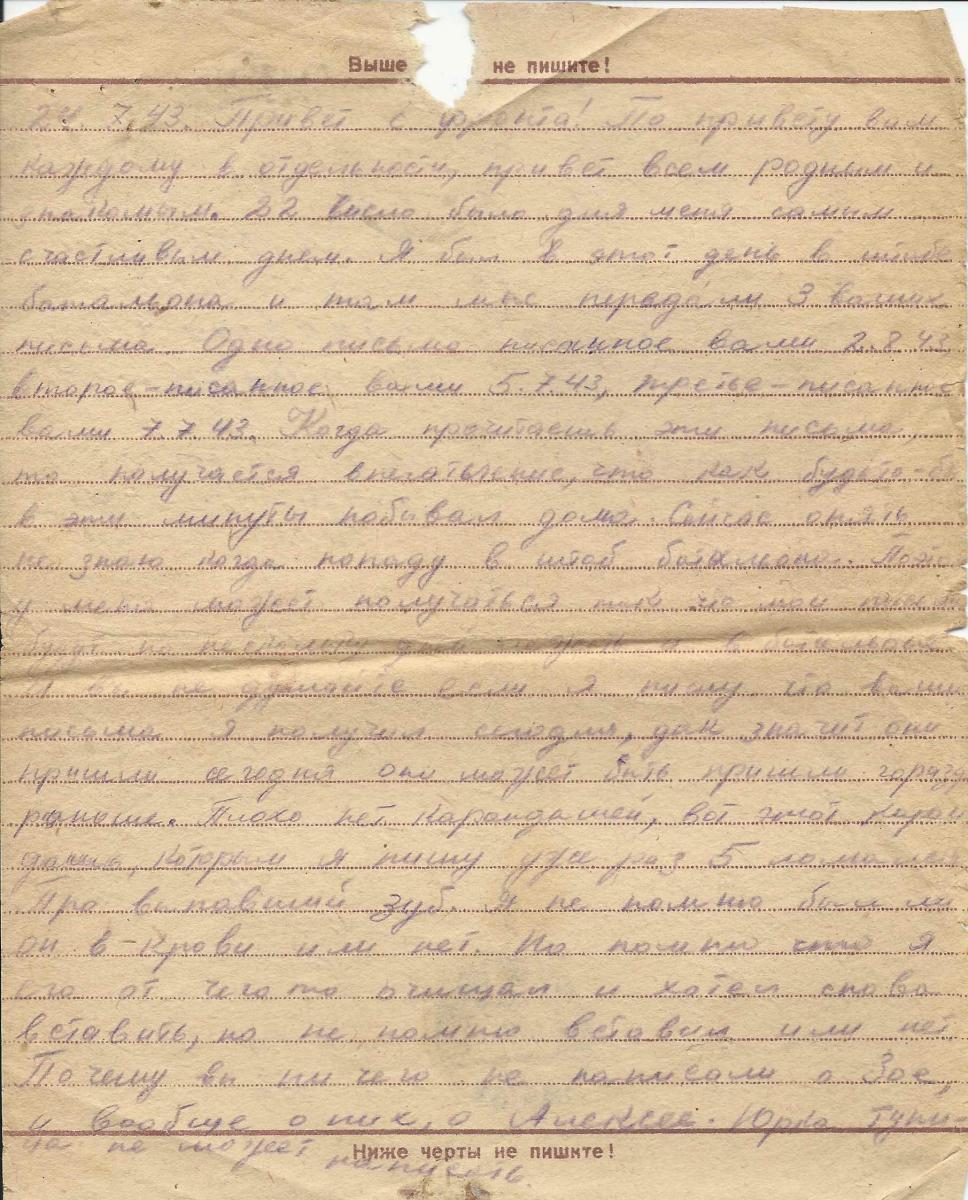 Выше не пишите!
24. 7.43. Привет с фронта! По привету вам
каждому в отдельности, привет всем родным и
знакомым. 22 число было для меня самым
счастливым днем. Я был в этот день в штабе
батальона и там мне передали 3 ваших
письма. Одно письмо писанное вами 2.8.43
второе-писанное вами 5.7.43, третье-писанное
вами 7.7.43. Когда прочитаешь эти письма,
то получается впечатление, что как будьто-бы
в эти минуты побывал дома. Сейчас опять
не знаю когда попаду в штаб батальона.
у меня может получаться так что мои
по нескольку дней лежать и в батальоне
И вы не думайте если я пишу что ваши
письма я получил сегодня, дак значит они
пришли сегодня они может быть пришли гораздо
раньше. Плохо нет карандашей, вот этот каран
дашь, которым я пишу уже раз 5
Про выпавший зуб. Я не помню был ли
он в-крови или нет. Но помню что я
его от чего то очищал и хотел снова
вставить, но не помню вставил или нет
Почему вы ни чего не написали о Зое,
и вообще о них, о Алексее. Юрка
не может написать.
Ниже черты не пишите!